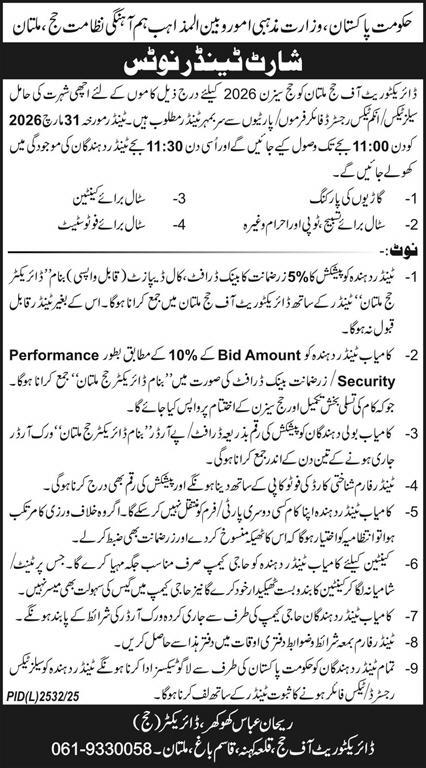 حکومت پاکستان، وزارت مذہبی امور و بین المذاہب ہم آہنگی نظامت حج، ملتان
شارٹ ٹینڈر نوٹس
ڈائریکٹوریٹ آف حج ملتان کو حج سیزن 2026 کیلئے درج ذیل کاموں کے لئے اچھی شہرت کی حامل
سیلز ٹیکس/انکم ٹیکس رجسٹرڈ فائلر فرموں/پارٹیوں سے سربمہر ٹینڈر مطلوب ہیں۔ ٹینڈر مورخہ 31 مارچ 2026
کو دن 11:00 بجے تک وصول کیے جائیں گے اور اُسی دن 11:30 بجے ٹینڈر دہندگان کی موجودگی میں
کھولے جائیں گے۔
1- گاڑیوں کی پارکنگ 3- سٹال برائے کینٹین
2- سٹال برائے تسبیح، ٹوپی اور احرام وغیرہ 4- سٹال برائے فوٹوسٹیٹ
نوٹ:-
1- ٹینڈر دہندہ کو پیشکش کا 5% زرضمانت کا بینک ڈرافٹ، کال ڈیپازٹ (قابل واپسی) بنام "ڈائریکٹر
حج ملتان" ٹینڈر کے ساتھ ڈائریکٹوریٹ آف حج ملتان میں جمع کرانا ہوگا۔ اس کے بغیر ٹینڈر قابل
قبول نہ ہوگا۔
2- کامیاب ٹینڈر دہندہ کو Bid Amount کے 10% کے مطابق بطور Performance
Security / زرضمانت بینک ڈرافٹ کی صورت میں "بنام ڈائریکٹر حج ملتان" جمع کرانا ہوگا۔
جو کہ کام کی تسلی بخش تکمیل اور حج سیزن کے اختتام پر واپس کیا جائے گا۔
3- کامیاب بولی دہندگان کو پیشکش کی رقم بذریعہ ڈرافٹ/پے آرڈر "بنام ڈائریکٹر حج ملتان" ورک آرڈر
جاری ہونے کے تین دن کے اندر جمع کرانا ہوگی۔
4- ٹینڈر فارم شناختی کارڈ کی فوٹو کاپی کے ساتھ دینا ہونگے اور پیشکش کی رقم بھی درج کرنا ہوگی۔
5- کامیاب ٹینڈر دہندہ اپنا کام کسی دوسری پارٹی/فرم کو منتقل نہیں کر سکے گا۔ اگر وہ خلاف ورزی کا مرتکب
ہوا تو انتظامیہ کو اختیار ہوگا کہ اس کا ٹھیکہ منسوخ کر دے اور زرضمانت بھی ضبط کر لے۔
6- کینٹین کیلئے کامیاب ٹینڈر دہندہ کو حاجی کیمپ صرف مناسب جگہ مہیا کرے گا۔ جس پر ٹینٹ/
شامیانہ لگا کر کینٹین کا بندوبست ٹھیکیدار خود کرے گا نیز حاجی کیمپ میں گیس کی سہولت بھی میسر نہیں۔
7- کامیاب ٹینڈر دہندگان حاجی کیمپ کی طرف سے جاری کردہ ورک آرڈر کی شرائط کے پابند ہونگے۔
8- ٹینڈر فارم بمعہ شرائط و ضوابط دفتری اوقات میں دفتر ہذا سے حاصل کریں۔
9- تمام ٹینڈر دہندگان کو حکومت پاکستان کی طرف سے لاگو ٹیکسز ادا کرنا ہونگے ٹینڈر دہندہ کو سیلز ٹیکس
رجسٹرڈ/ٹیکس فائلر ہونے کا ثبوت ٹینڈر کے ساتھ لف کرنا ہوگا۔
PID(L)2532/25
ریحان عباس کھوکھر، ڈائریکٹر (حج)
ڈائریکٹوریٹ آف حج، قلعہ کہنہ، قاسم باغ، ملتان۔ 061-9330058